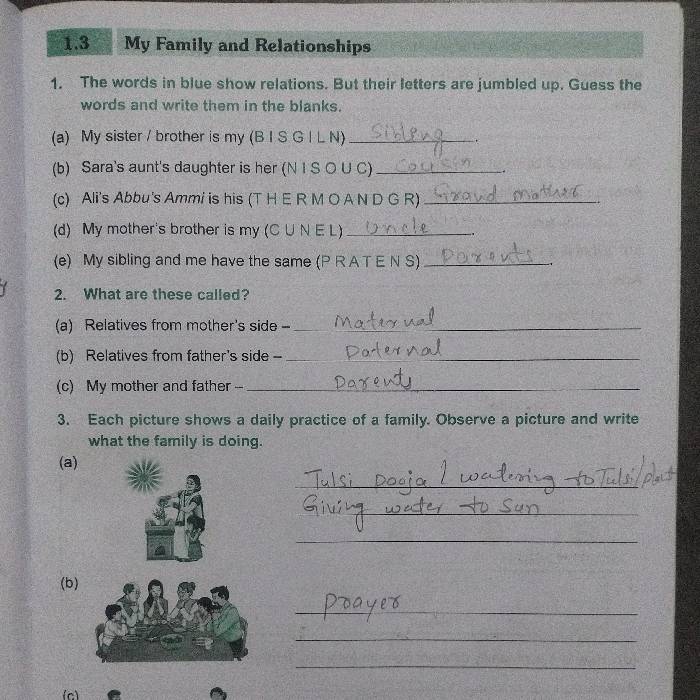 1.3 My Family and Relationships
1. The words in blue show relations. But their letters are jumbled up. Guess the
words and write them in the blanks.
(a) My sister / brother is my (B I S G I L N) Sibleng.
(b) Sara's aunt's daughter is her (N I S O U C) Cousin.
(c) Ali's Abbu's Ammi is his (T H E R M O A N D G R) Grand mother.
(d) My mother's brother is my (C U N E L) Uncle.
(e) My sibling and me have the same (P R A T E N S) Parents.
2. What are these called?
(a) Relatives from mother's side – Maternal
(b) Relatives from father's side – Paternal
(c) My mother and father – Parents
3. Each picture shows a daily practice of a family. Observe a picture and write
what the family is doing.
(a)
Tulsi Pooja / watering to Tulsi/plant
Giving water to Sun
(b)
Prayer
(c)